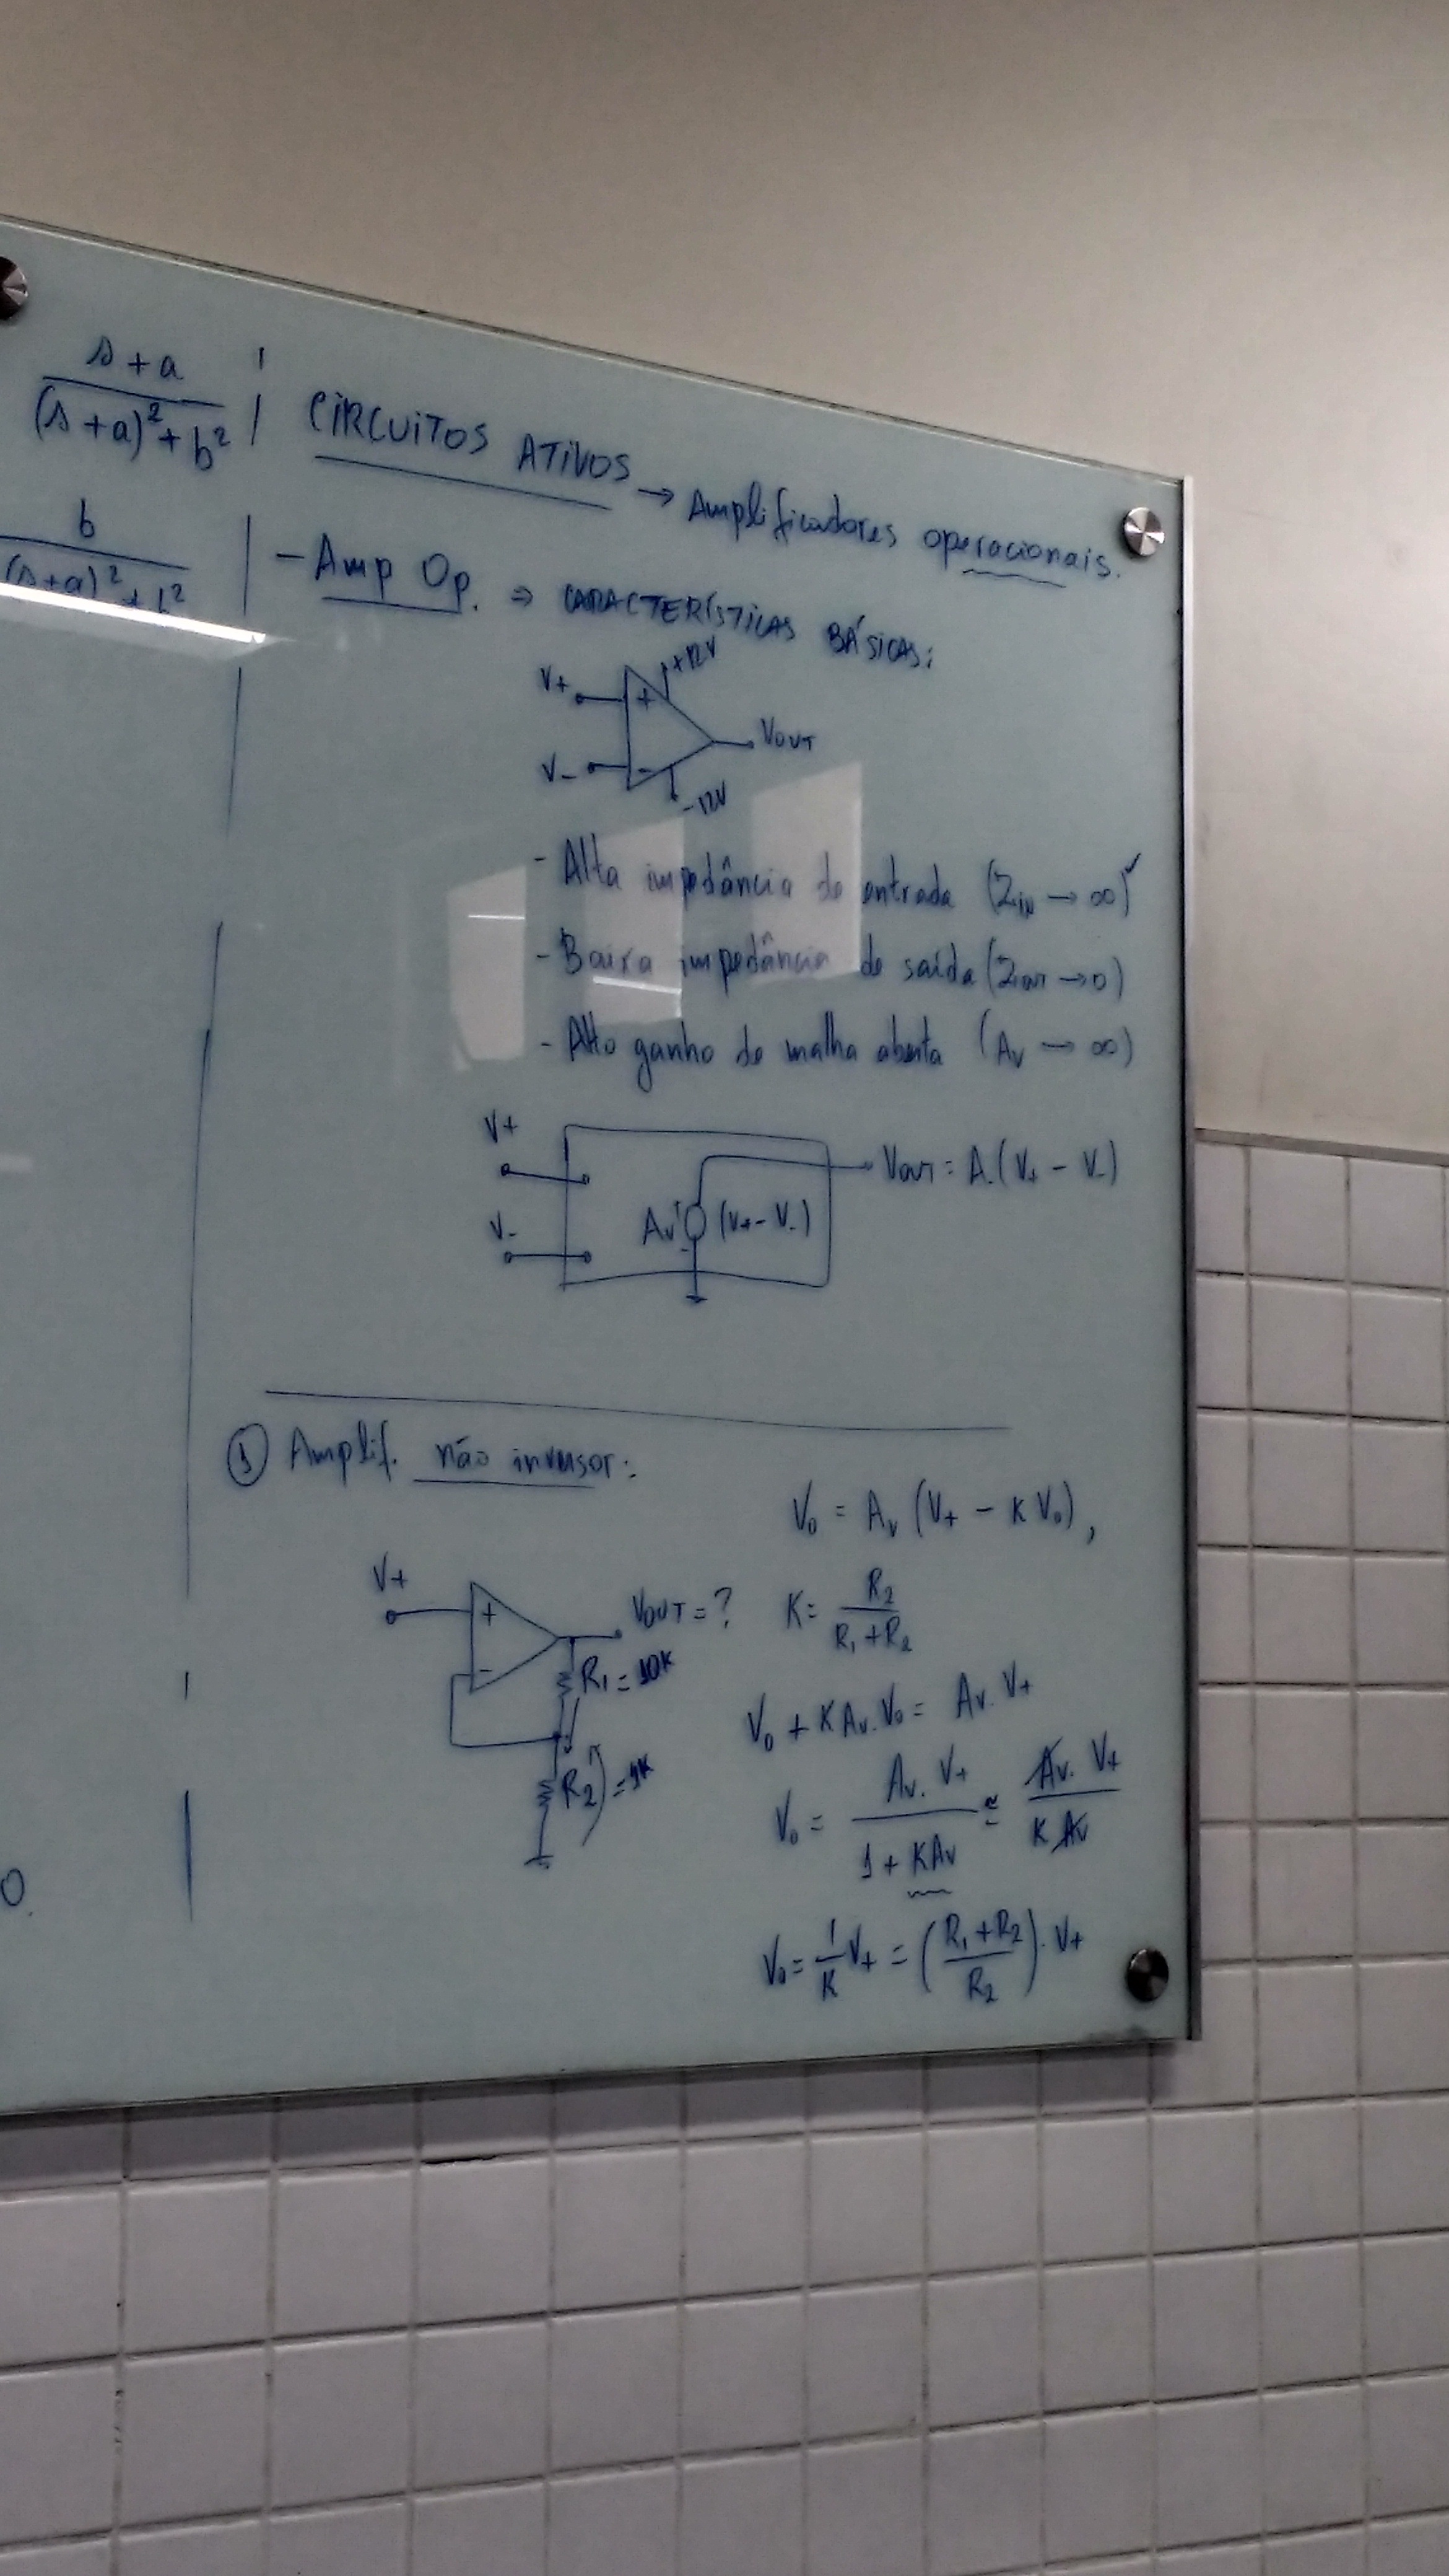 s+a
(s+a)²+b²
b
(s+a)²+b²
CIRCUITOS ATIVOS → Amplificadores operacionais.
- Amp Op. ⇒ CARACTERÍSTICAS BÁSICAS:
+12V
V+
+
VOUT
V-
-
-12V
- Alta impedância de entrada (Zin → ∞)
- Baixa impedância de saída (Zout → 0)
- Alto ganho de malha aberta (Av → ∞)
V+
Vout = A.(V+ - V-)
V-
Av (V+ - V-)
① Amplif. não inversor:
V+
+
-
VOUT = ?
R1 = 10K
R2 = 1K
V0 = Av (V+ - K V0),
K = R2 / (R1 + R2)
V0 + K Av. V0 = Av. V+
V0 = Av. V+ / (1 + KAv) ≅ Av. V+ / (K Av)
V0 = 1/K V+ = ((R1 + R2) / R2) . V+
0.